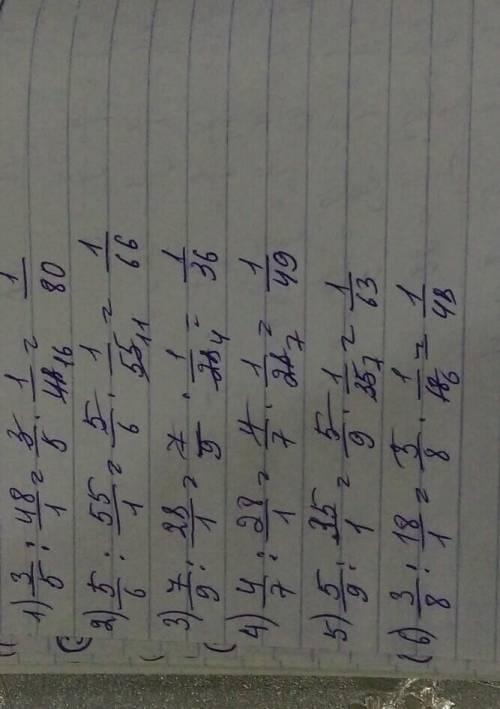 1) 3/5 : 48/1 = 3/5 · 1/48 16 = 1/80
2) 5/6 : 55/1 = 5/6 · 1/55 11 = 1/66
3) 7/9 : 28/1 = 7/9 · 1/28 4 = 1/36
4) 4/7 : 28/1 = 4/7 · 1/28 7 = 1/49
5) 5/9 : 35/1 = 5/9 · 1/35 7 = 1/63
6) 3/8 : 18/1 = 3/8 · 1/18 6 = 1/48